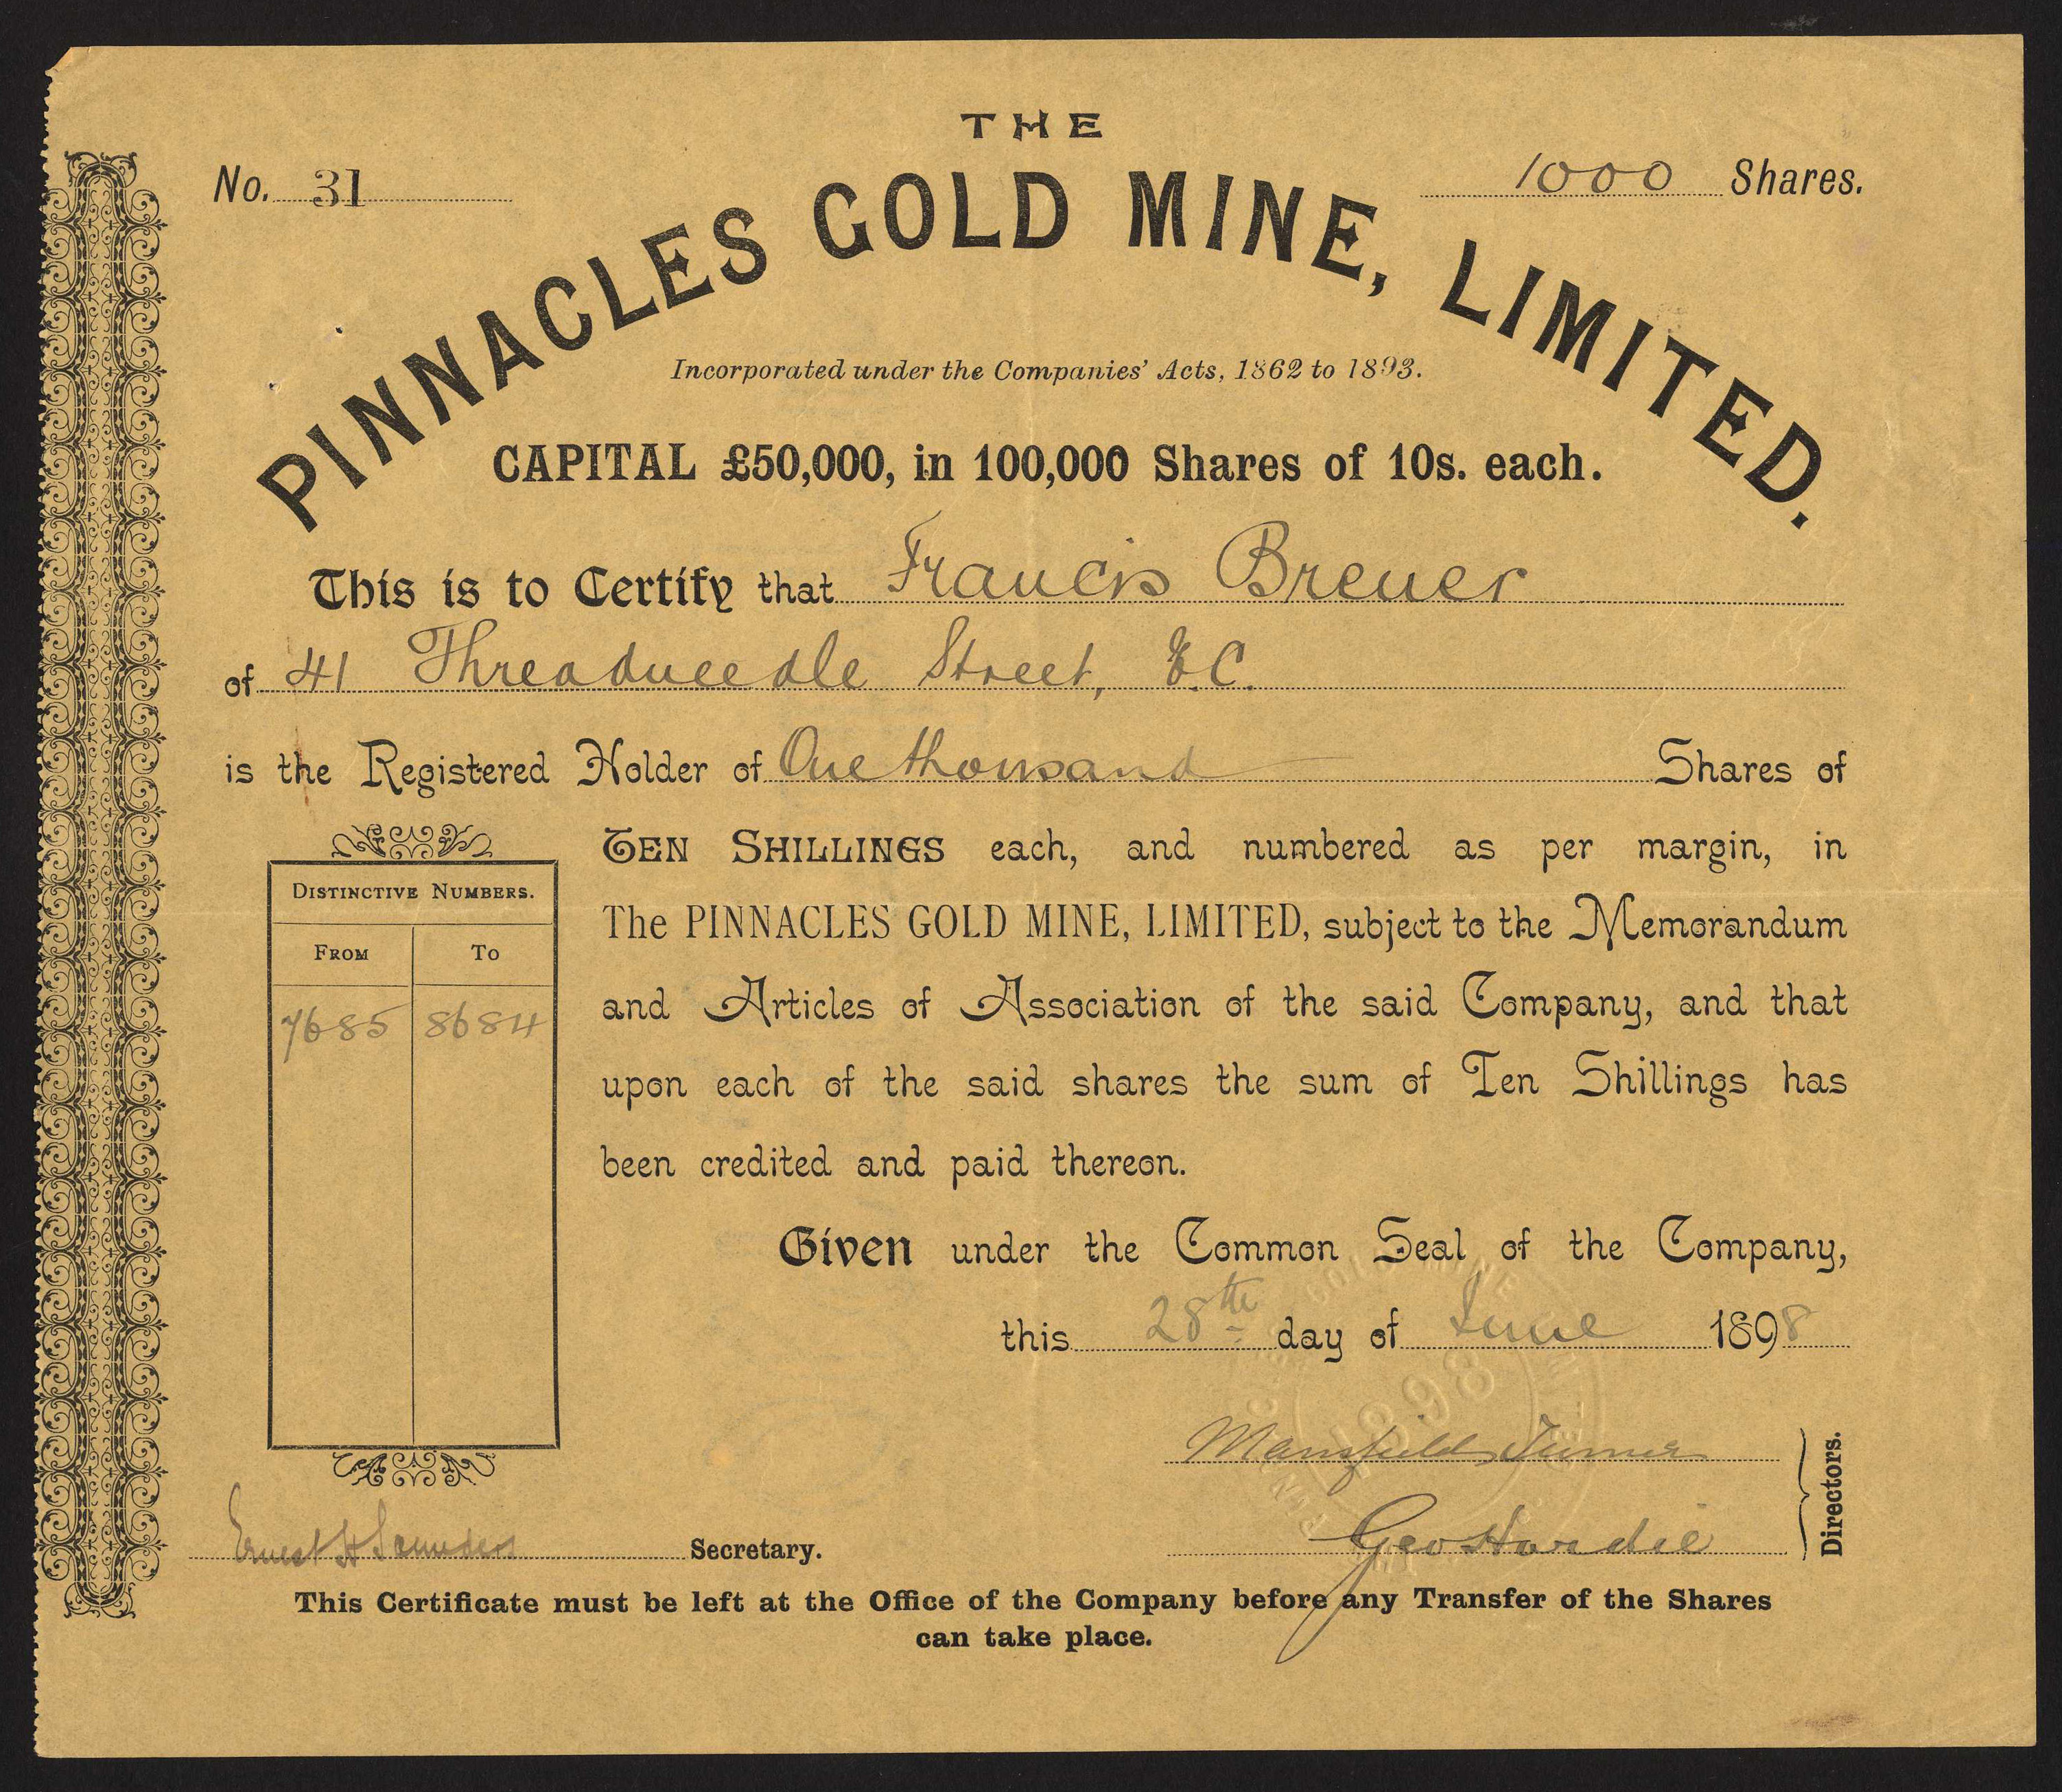 THE
No. 31
1000 Shares.
PINNACLES GOLD MINE, LIMITED.
Incorporated under the Companies' Acts, 1862 to 1893.
CAPITAL £50,000, in 100,000 Shares of 10s. each.
This is to Certify that Francis Breuer
of 41 Threadneedle Street, E.C.
is the Registered Holder of One thousand Shares of
TEN SHILLINGS each, and numbered as per margin, in
The PINNACLES GOLD MINE, LIMITED, subject to the Memorandum
and Articles of Association of the said Company, and that
upon each of the said shares the sum of Ten Shillings has
been credited and paid thereon.
DISTINCTIVE NUMBERS.
FROM TO
7685 8684
Given under the Common Seal of the Company,
this 28th day of June 1898
1898
Mansfield Turner
Geo Hardie
Directors.
Ernest H Saunders Secretary.
This Certificate must be left at the Office of the Company before any Transfer of the Shares
can take place.